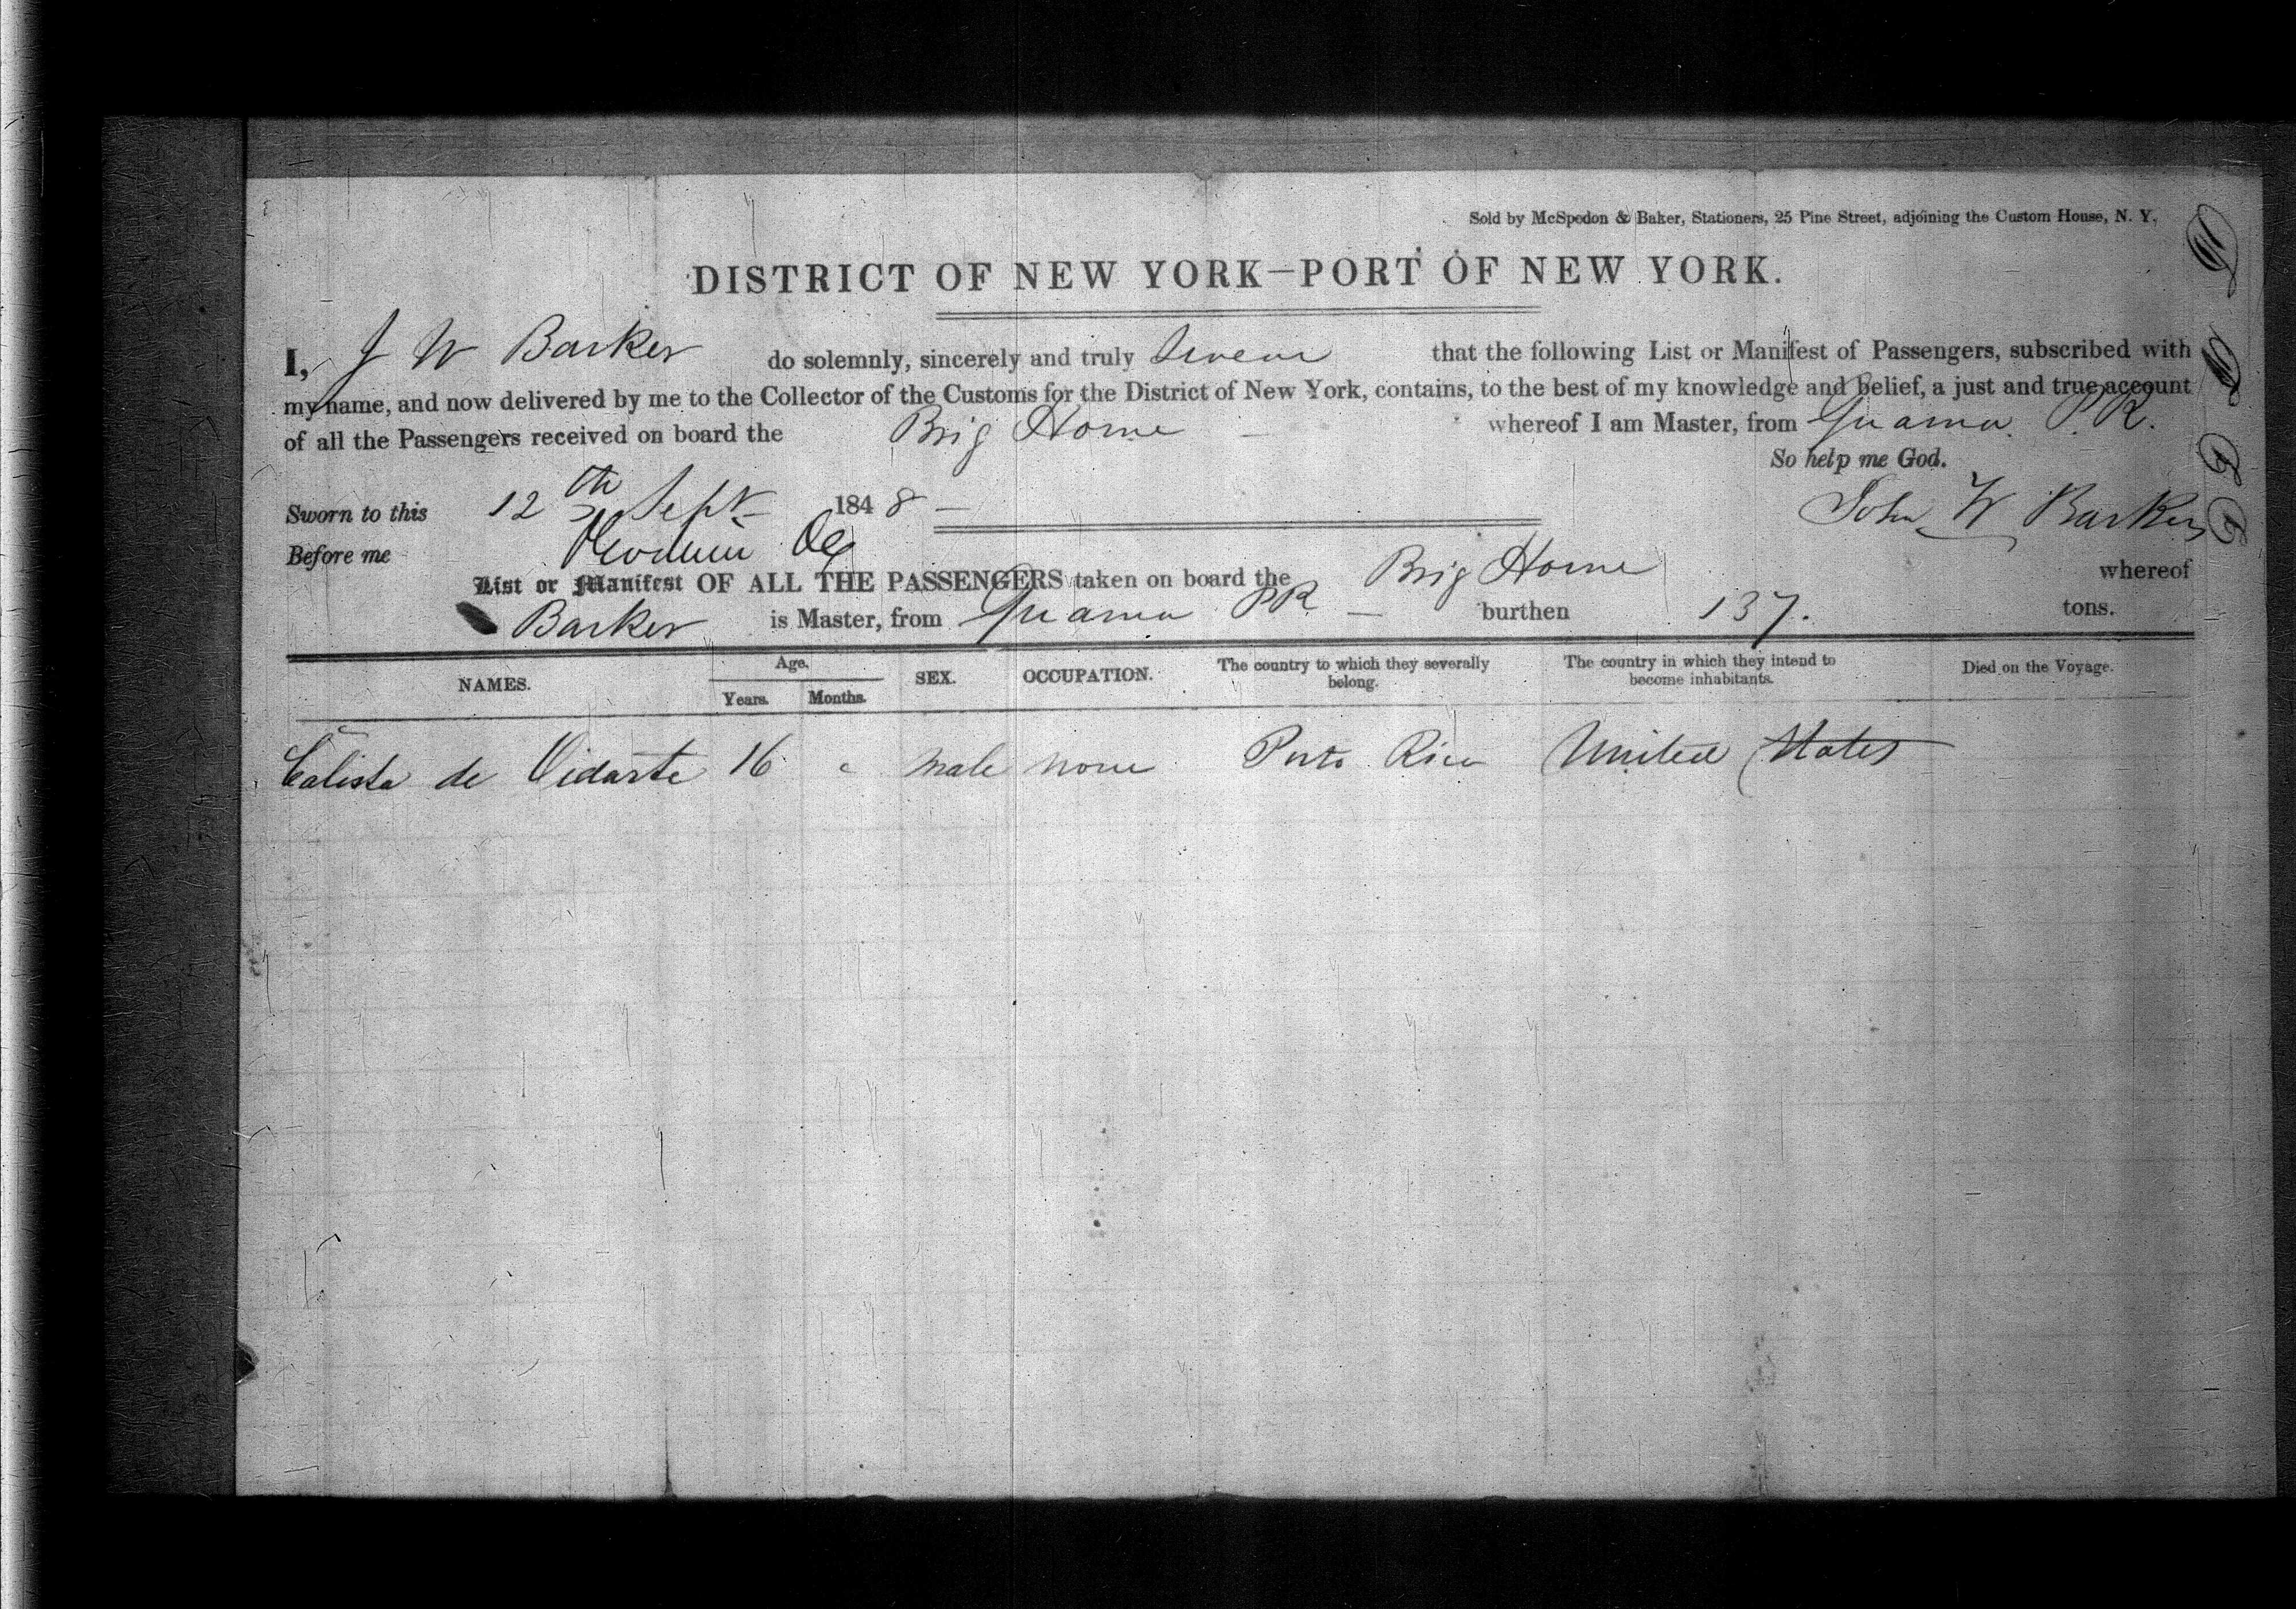 Sold by McSpedon & Baker, Stationers, 25 Pine Street, adjoining the Custom House, N. Y.
DISTRICT OF NEW YORK—PORT OF NEW YORK.
I, J W Barker do solemnly, sincerely and truly swear that the following List or Manifest of Passengers, subscribed with
my name, and now delivered by me to the Collector of the Customs for the District of New York, contains, to the best of my knowledge and belief, a just and true account
of all the Passengers received on board the Brig Horne whereof I am Master, from Guama P.R.
So help me God.
Sworn to this 12th Sept 1848 John W Barker
Before me
List or Manifest OF ALL THE PASSENGERS taken on board the Brig Horne whereof
Barker is Master, from Guama PR burthen 137. tons.
NAMES. Age. Years. Months. SEX. OCCUPATION. The country to which they severally belong. The country in which they intend to become inhabitants. Died on the Voyage.
Calista de Vidarte 16 male none Porto Rico United States